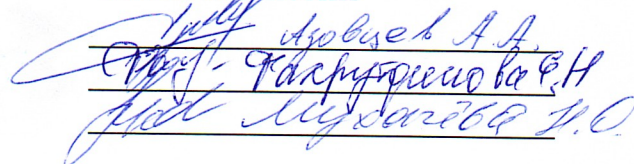 Азовцев А.А.
Фахрутдинова Е.Н
Мухачёва Н.О.